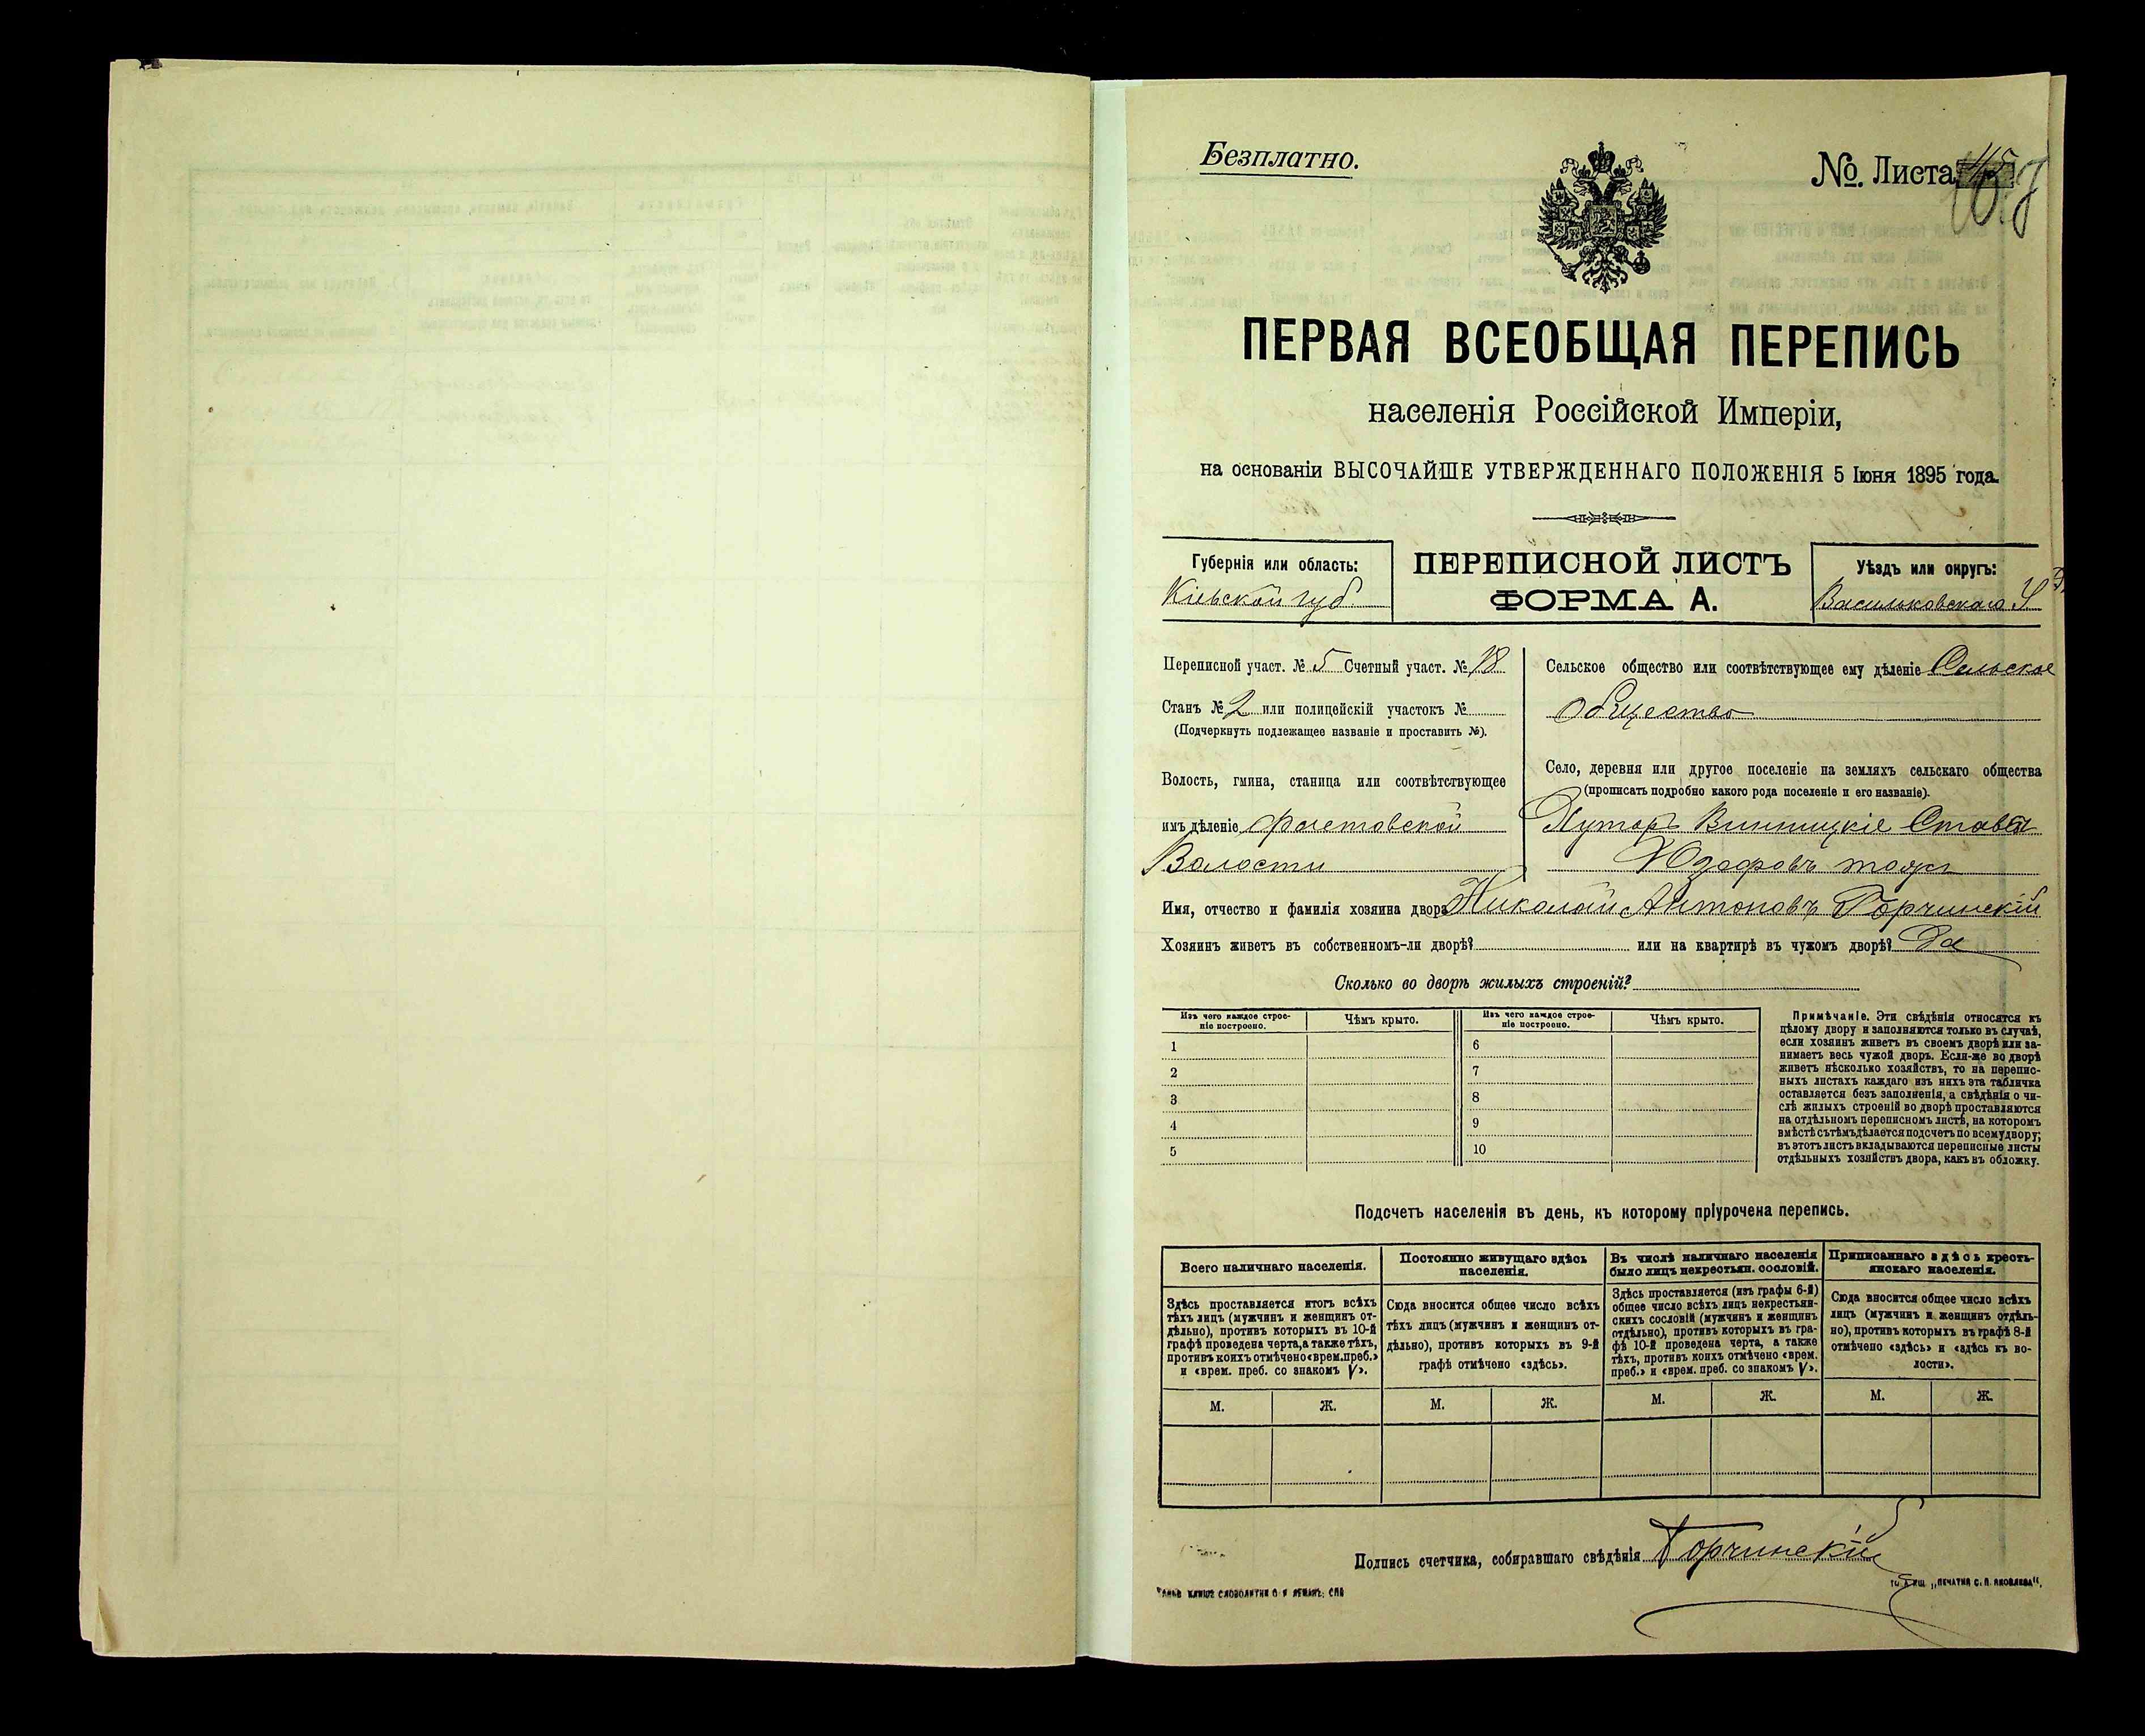 Безплатно.
№. Листа
ПЕРВАЯ ВСЕОБЩАЯ ПЕРЕПИСЬ
населенія Россійской Имперіи,
на основаніи ВЫСОЧАЙШЕ УТВЕРЖДЕННАГО ПОЛОЖЕНІЯ 5 Іюня 1895 года.
Губернія или область:
Кіевской губ.
ПЕРЕПИСНОЙ ЛИСТЪ
ФОРМА А.
Уѣздъ или округъ:
Васильковскаго У
Переписной участ. № 5 Счетный участ. № 18
Станъ № 2 или полицейскій участокъ №
(Подчеркнуть подлежащее названіе и проставить №).
Волость, гмина, станица или соотвѣтствующее
имъ дѣленіе Фастовской
Волости
Сельское общество или соотвѣтствующее ему дѣленіе Сельское
общество
Село, деревня или другое поселеніе на земляхъ сельскаго общества
(прописать подробно какого рода поселеніе и его названіе).
Хуторъ Винницкіе Ставы
Юзефовъ тожъ
Имя, отчество и фамилія хозяина двора Николай Антоновъ Горчинскій
Хозяинъ живетъ въ собственномъ-ли дворѣ? или на квартирѣ въ чужомъ дворѣ? Да
Сколько во дворѣ жилыхъ строеній?
Изъ чего каждое строе-
ніе построено.
Чѣмъ крыто.
Изъ чего каждое строе-
ніе построено.
Чѣмъ крыто.
1
6
2
7
3
8
4
9
5
10
Примѣчаніе. Эти свѣдѣнія относятся къ
цѣлому двору и заполняются только въ случаѣ,
если хозяинъ живетъ въ своемъ дворѣ или за-
нимаетъ весь чужой дворъ. Если-же во дворѣ
живетъ нѣсколько хозяйствъ, то на перепис-
ныхъ листахъ каждаго изъ нихъ эта табличка
оставляется безъ заполненія, а свѣдѣнія о чи-
слѣ жилыхъ строеній во дворѣ проставляются
на отдѣльномъ переписномъ листѣ, на которомъ
вмѣстѣ съ тѣмъ дѣлается подсчетъ по всему двору;
въ этотъ листъ вкладываются переписные листы
отдѣльныхъ хозяйствъ двора, какъ въ обложку.
Подсчетъ населенія въ день, къ которому пріурочена перепись.
Всего наличнаго населенія.
Здѣсь проставляется итогъ всѣхъ
тѣхъ лицъ (мужчинъ и женщинъ от-
дѣльно), противъ которыхъ въ 10-й
графѣ проведена черта, а также тѣхъ,
противъ коихъ отмѣчено «врем. преб.»
и «врем. преб. со знакомъ V».
М. Ж.
Постоянно живущаго здѣсь
населенія.
Сюда вносится общее число всѣхъ
тѣхъ лицъ (мужчинъ и женщинъ от-
дѣльно), противъ которыхъ въ 9-й
графѣ отмѣчено «здѣсь».
М. Ж.
Въ числѣ наличнаго населенія
было лицъ некрестьян. сословій.
Здѣсь проставляется (изъ графы 6-й)
общее число всѣхъ лицъ некрестьян-
скихъ сословій (мужчинъ и женщинъ
отдѣльно), противъ которыхъ въ гра-
фѣ 10-й проведена черта, а также
тѣхъ, противъ коихъ отмѣчено «врем.
преб.» и «врем. преб. со знакомъ V».
М. Ж.
Приписаннаго здѣсь кресть-
янскаго населенія.
Сюда вносится общее число всѣхъ
лицъ (мужчинъ и женщинъ отдѣль-
но), противъ которыхъ въ графѣ 8-й
отмѣчено «здѣсь» и «здѣсь къ во-
лости».
М. Ж.
Подпись счетчика, собиравшаго свѣдѣнія Горчинскій
"ПЕЧАТНЯ С. П. ЯКОВЛЕВА".